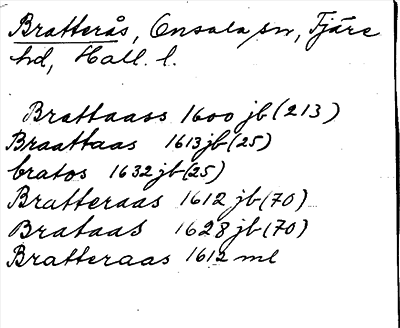 Bratterås, Onsala sn, Fjäre
hd, Hall. l.
Brattaass 1600 jb (213)
Braattaas 1613 jb (25)
bratos 1632 jb (25)
Bratteraas 1612 jb (70)
Brataas 1628 jb (70)
Bratteraas 1612 ml